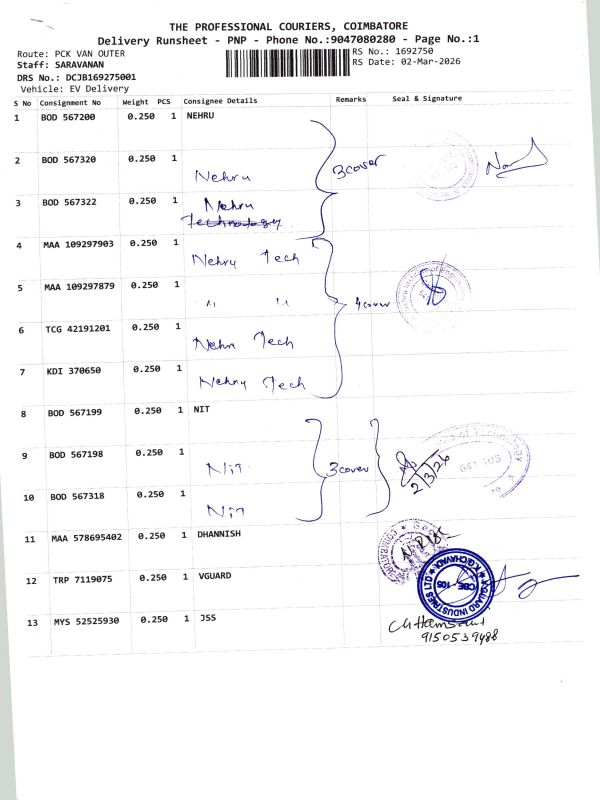 THE PROFESSIONAL COURIERS, COIMBATORE
Delivery Runsheet - PNP - Phone No.:9047080280 - Page No.:1
Route: PCK VAN OUTER
RS No.: 1692750
Staff: SARAVANAN
RS Date: 02-Mar-2026
DRS No.: DCJB169275001
Vehicle: EV Delivery
S No Consignment No Weight PCS Consignee Details Remarks Seal & Signature
1 BOD 567200 0.250 1 NEHRU
2 BOD 567320 0.250 1 Nehru 3 cover
3 BOD 567322 0.250 1 Nehru
Technology
4 MAA 109297903 0.250 1 Nehru Tech
5 MAA 109297879 0.250 1 " " 4 cover
6 TCG 42191201 0.250 1 Nehru Tech
7 KDI 370650 0.250 1 Nehru Tech
8 BOD 567199 0.250 1 NIT
9 BOD 567198 0.250 1 NIT 3 cover 2/3/26
641 105
10 BOD 567318 0.250 1 NIT
11 MAA 578695402 0.250 1 DHANNISH
12 TRP 7119075 0.250 1 VGUARD
V.GUARD INDUSTRIES LTD
CBE - 105
13 MYS 52525930 0.250 1 JSS
9150539488